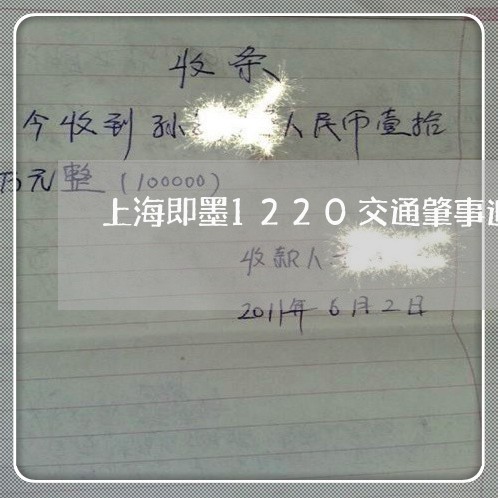 收条
今收到孙 人民币壹拾
万元整(100000)
上海即墨1220交通肇事
收款人
2011年6月2日